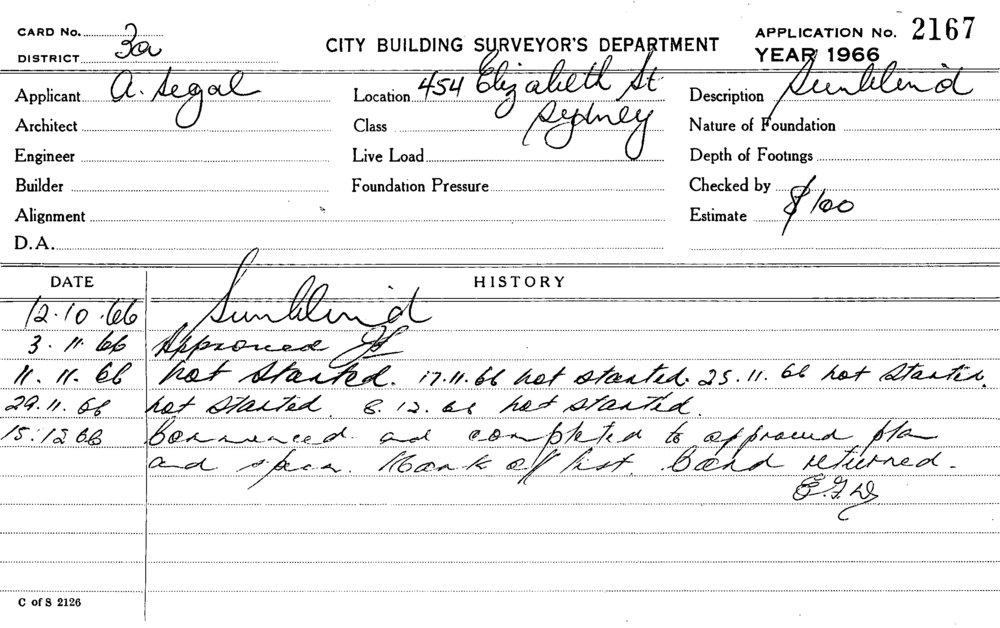 CARD No.
DISTRICT 3a
CITY BUILDING SURVEYOR'S DEPARTMENT
APPLICATION No. 2167
YEAR 1966
Applicant A. Segal
Location 454 Elizabeth St
Sydney
Description Sunblind
Architect
Class
Nature of Foundation
Engineer
Live Load
Depth of Footings
Builder
Foundation Pressure
Checked by
Alignment
Estimate $100
D.A.
DATE
HISTORY
12.10.66 Sunblind
3.11.66 Approved
11.11.66 not started. 17.11.66 not started. 25.11.66 not started.
29.11.66 not started. 8.12.66 not started.
15.12.66 Commenced and completed to approved plan
and specn. Mark off list. Card returned.
C of S 2126